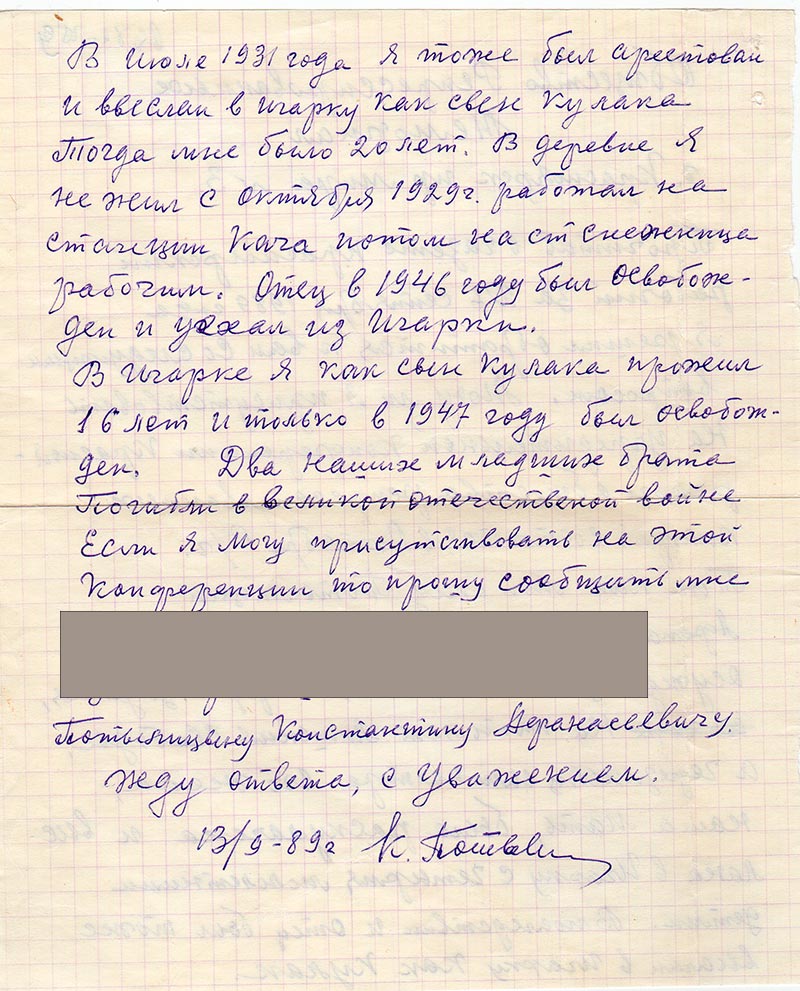 В Июле 1931 года я тоже был арестован
и выслан в игарку как сын Кулака
Тогда мне было 20 лет. В деревне я
не жил с октября 1929г. работал на
станции Кача потом на ст снежница
рабочим. Отец в 1946 году был освобож-
ден и уехал из Игарки.
В Игарке я как сын Кулака прожил
16 лет и только в 1947 году был освобож-
ден. Два наших младших брата
Погибли в великой отечественой войне
Если я могу присутствовать на этой
Конференции то прошу сообщить мне
Потылицыну Константину Афанасьевичу.
Жду ответа, с Уважением.
13/9-89г К.